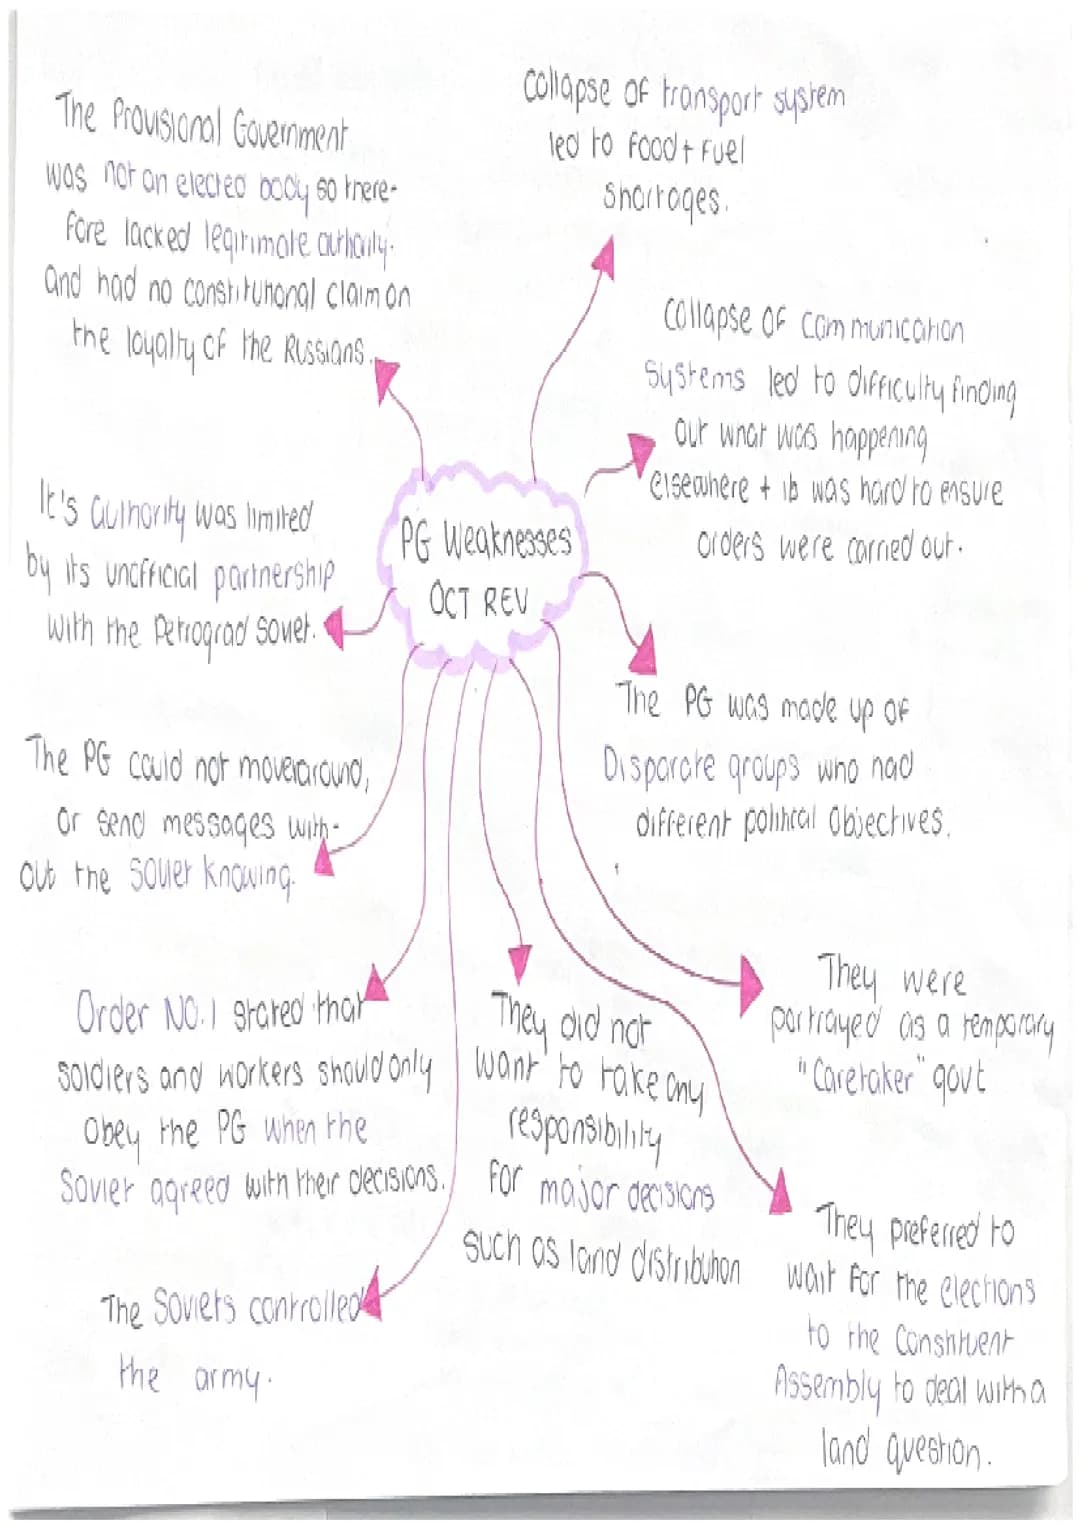 The Provisional Government
was not an elected body so there-
fore lacked legitimate authority.
and had no constitutional claim on
the loyalty of the Russians.
Collapse of transport system
led to food + fuel
shortages.
Collapse of communication
systems led to difficulty finding
out what was happening
elsewhere + it was hard to ensure
orders were carried out.
PG Weaknesses
OCT REV
It's authority was limited
by its unofficial partnership
with the Petrograd Soviet.
The PG was made up of
Disparate groups who had
different political objectives.
The PG could not move around,
or send messages with-
out the Soviet knowing.
Order NO.1 stated that
soldiers and workers should only
obey the PG when the
Soviet agreed with their decisions.
They did not
want to take any
responsibility
for major decisions
such as land distribution
They were
portrayed as a temporary
"Caretaker" govt
They preferred to
wait for the elections
to the Constituent
Assembly to deal with a
land question.
The Soviets controlled
the army.